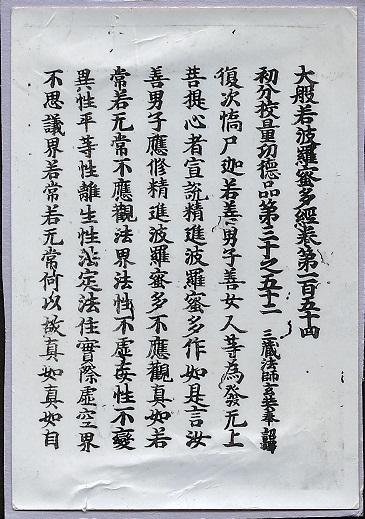 大般若波羅蜜多經卷第一百五十四
初分校量功德品第三十之五十二 三藏法師玄奘奉 詔譯
復次憍尸迦若善男子善女人等為發无上
菩提心者宣說精進波羅蜜多作如是言汝
善男子應修精進波羅蜜多不應觀真如若
常若无常不應觀法界法性不虛妄性不變
異性平等性離生性法定法住實際虛空界
不思議界若常若无常何以故真如真如自